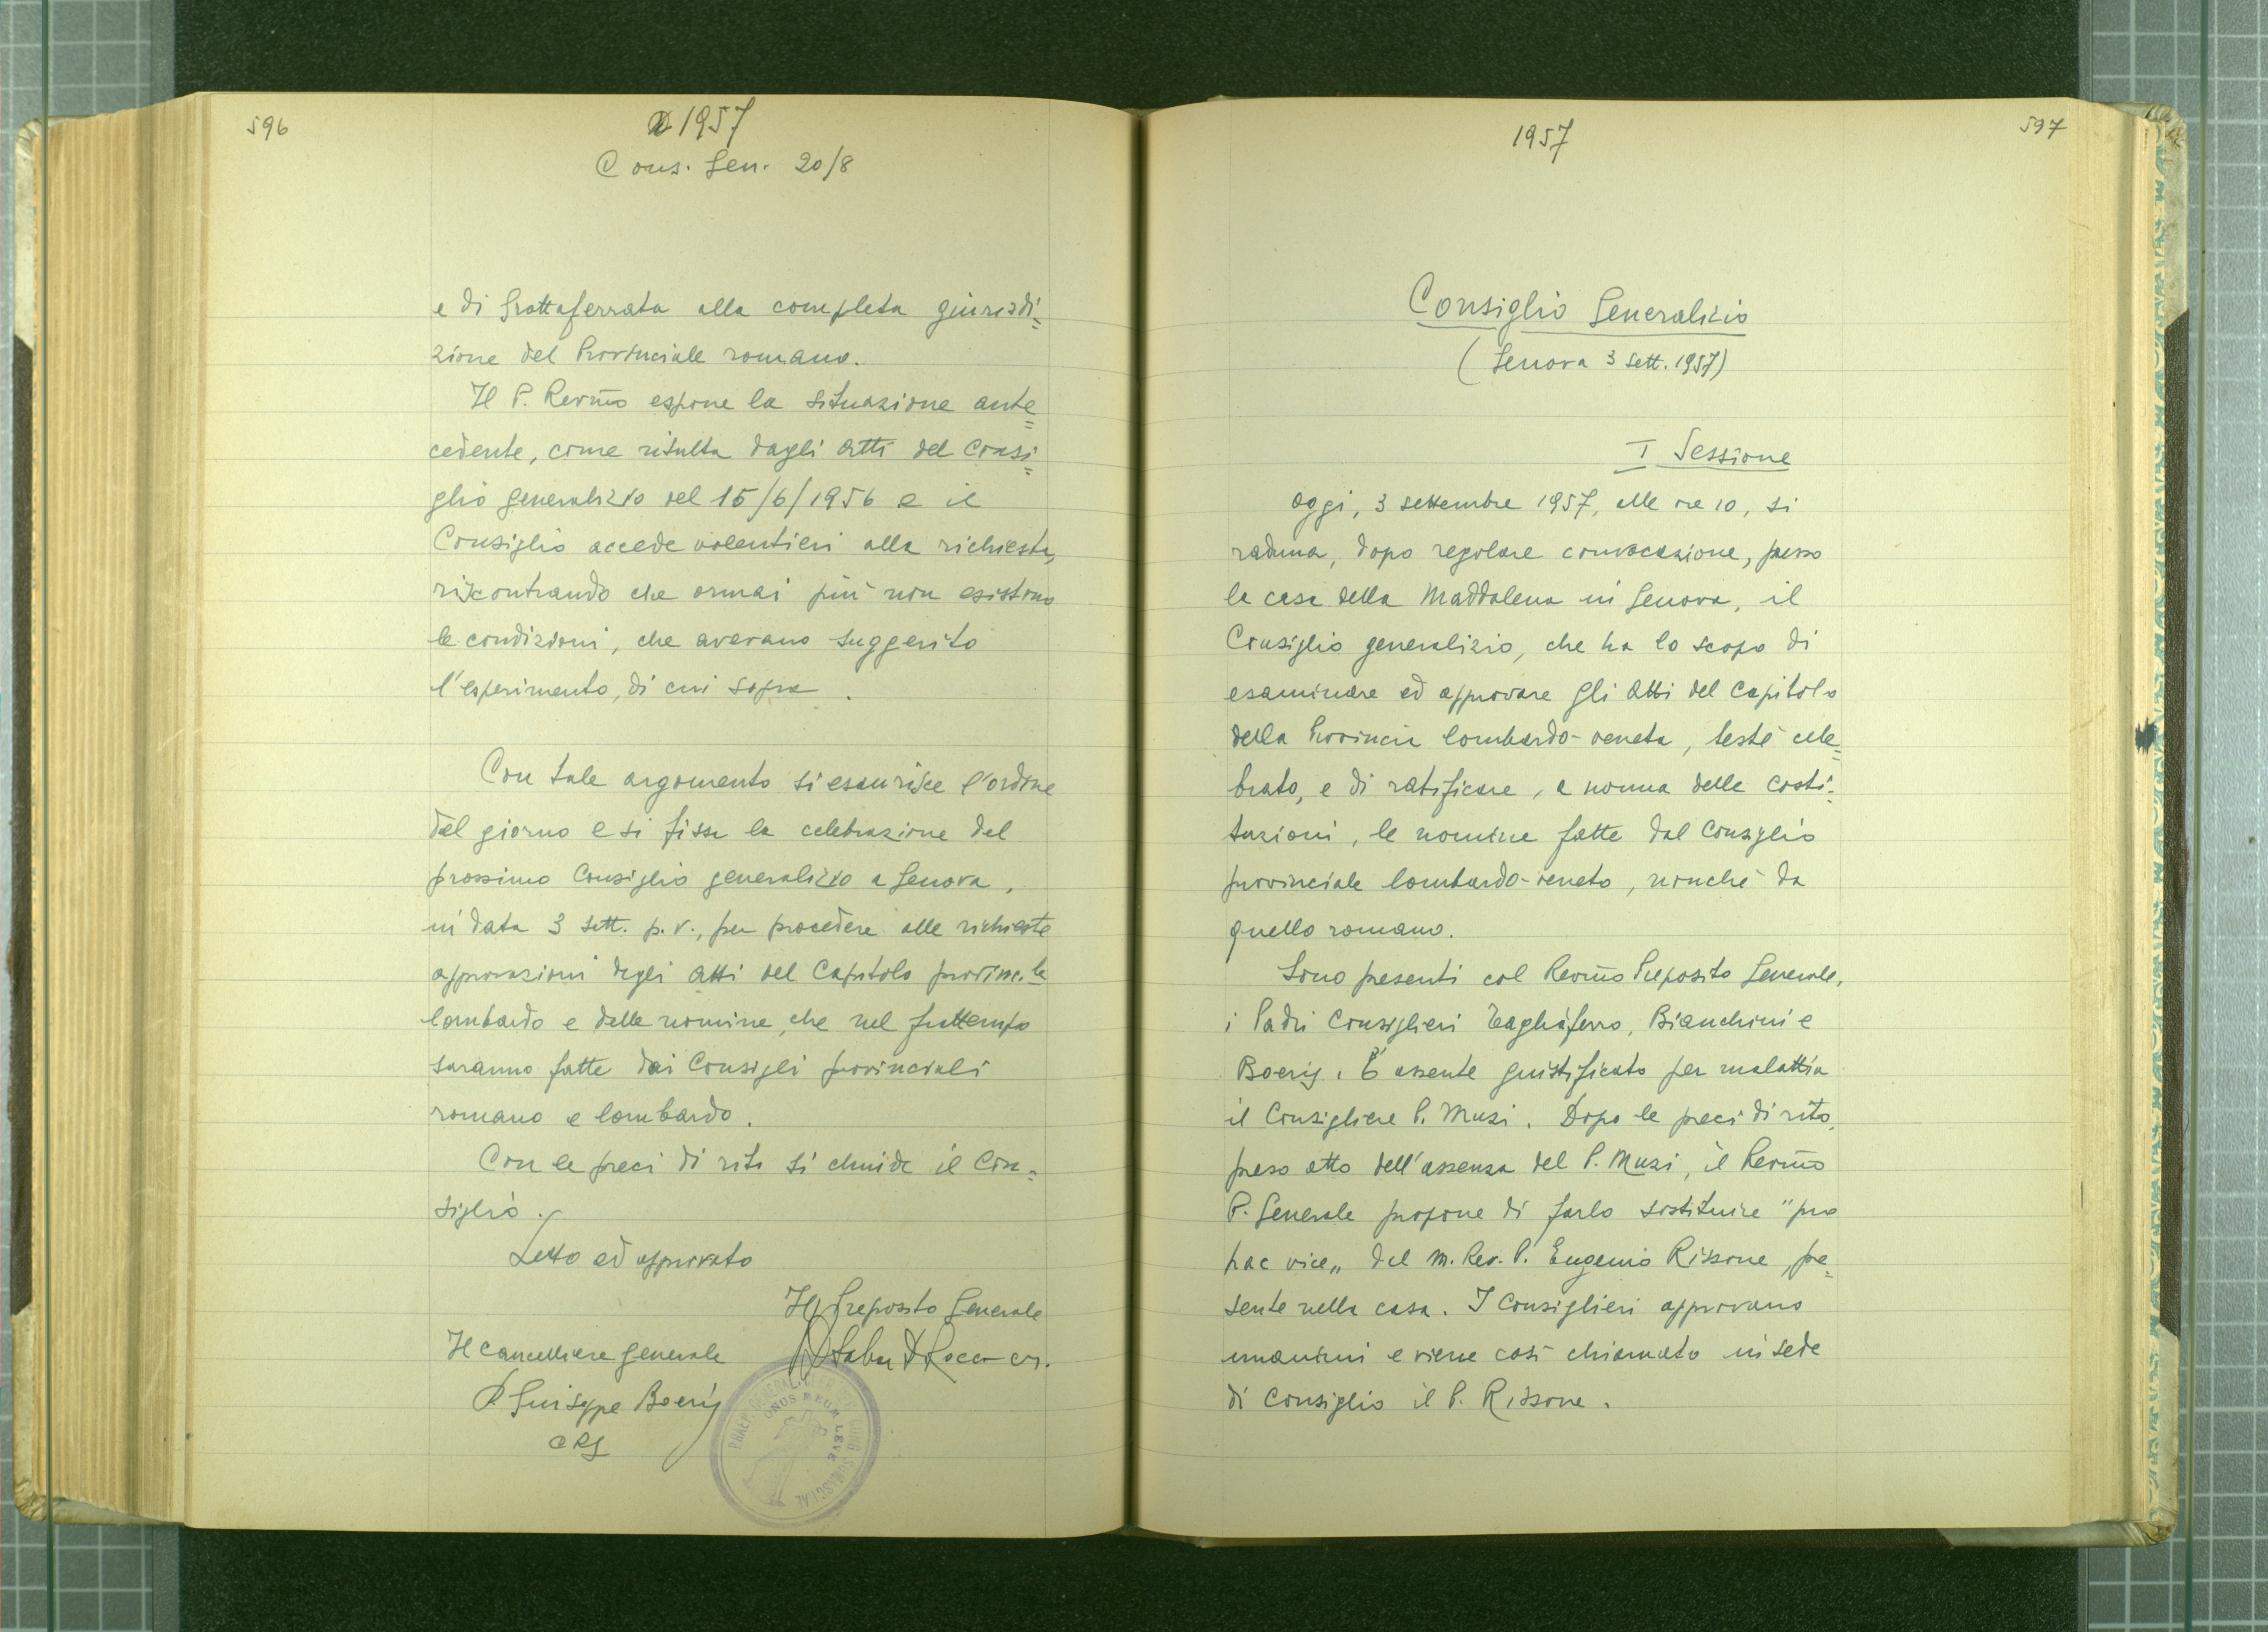 596
1957
Cons. Gen. 20/8
e di Grottaferrata alla completa giurisdi=
zione del Provinciale romano.
Il P. Rev̅mo espone la situazione ante=
cedente, come risulta dagli Atti del Consi=
glio generalizio del 15/6/1956 e il
Consiglio accede volentieri alla richiesta,
riscontrando che ormai più non esistono
le condizioni, che avevano suggerito
l'esperimento, di cui sopra.
Con tale argomento si esaurisce l'ordine
del giorno e si fissa la celebrazione del
prossimo Consiglio generalizio a Genova,
in data 3 sett. p.v., per procedere alle richieste
approvazioni degli Atti del Capitolo provinc.le
lombardo e delle nomine, che nel frattempo
saranno fatte dai Consigli provinciali
romano e lombardo.
Con le preci di rito si chiude il Con=
siglio.
Letto ed approvato
Il Preposito Generale
Il Cancelliere generale
P. Giuseppe Boeris
CRS
PRAEP. GENERAL. CONG. SOMASCHAE
ONUS MEUM LEVE
1957
597
Consiglio Generalizio
(Genova 3 Sett. 1957)
I Sessione
Oggi, 3 settembre 1957, alle ore 10, si
raduna, dopo regolare convocazione, presso
la casa della Maddalena in Genova, il
Consiglio generalizio, che ha lo scopo di
esaminare ed approvare gli Atti del Capitolo
della Provincia lombardo-veneta, testé cele=
brato, e di ratificare, a norma delle costi=
tuzioni, le nomine fatte dal Consiglio
provinciale lombardo-veneto, nonché da
quello romano.
Sono presenti col Rev̅mo Preposito Generale,
i Padri Consiglieri Tagliaferro, Bianchini e
Boeris. È assente giustificato per malattia
il Consigliere P. Muzi. Dopo le preci di rito,
preso atto dell'assenza del P. Muzi, il Rev̅mo
P. Generale propone di farlo sostituire "pro
hac vice„ dal M. Rev. P. Eugenio Rissone, pre=
sente nella casa. I Consiglieri approvano
unanimi e viene così chiamato in sede
di Consiglio il P. Rissone.